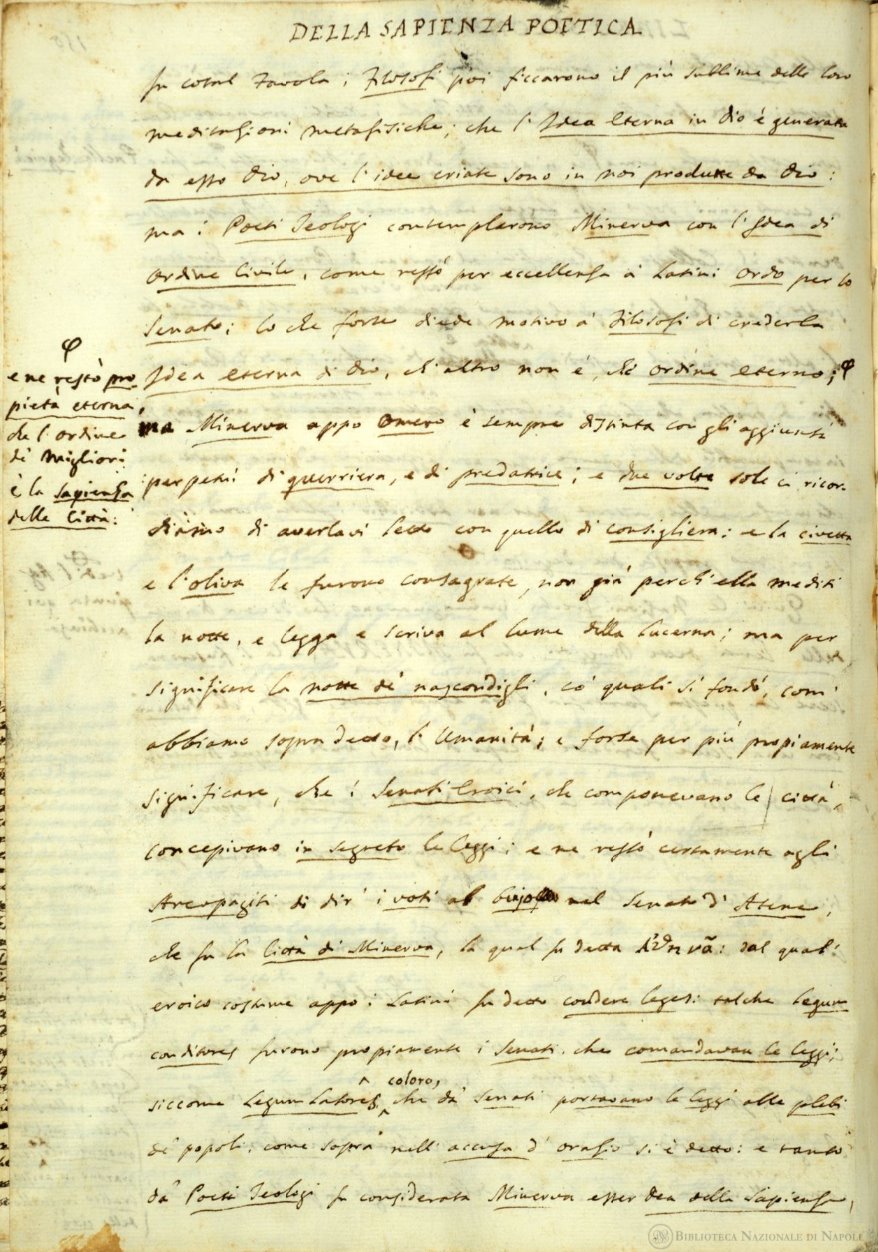 DELLA SAPIENZA POETICA
su cotal Favola i Filosofi poi ficcarono il più sublime delle loro
meditazioni metafisiche; che l'Idea Eterna in Dio è generata
da esso Dio, ove l'idee criate sono in noi produtte da Dio:
ma i Poeti Teologi contemplarono Minerva con l'Idea di
Ordine Civile, come restò per eccellenza a' Latini Ordo per lo
Senato; lo che forse diede motivo a' Filosofi di crederla
Idea eterna di Dio, ch'altro non è, che ordine eterno; φ
φ
e ne restò pro
pietà eterna,
che l'ordine
de' migliori
è la sapienza
delle Città:
ma Minerva appo Omero è sempre distinta con gli aggiunti
perpetui di guerriera, e di predatrice; e due volte sole ci ricor-
diamo di averlavi letto con quello di consigliera: e la civetta
e l'oliva le furono consagrate, non già perch'ella mediti
la notte, e legga e scriva al lume della lucerna; ma per
significare la notte de' nascondigli, co' quali si fondò, com'
abbiamo sopra detto, l'Umanità; e forse per più propiamente
significare, che i Senati Eroici, che componevano le città,
concepivano in segreto le leggi; e ne restò certamente agli
Areopagiti di dir' i voti al bujo nel Senato d'Atene,
che fu la Città di Minerva, la qual fu detta Ἀθηνᾶ: dal qual'
eroico costume appo i Latini fu detto condere leges: talche legum
conditores furono propiamente i Senati, che comandavan le leggi;
siccome Legum Latores, coloro, che da' Senati portavano le leggi alle plebi
de' popoli, come sopra nell'accusa d'Orazio si è detto: e tanto
da' Poeti Teologi fu considerata Minerva esser Dea della Sapienza,
BIBLIOTECA NAZIONALE DI NAPOLI